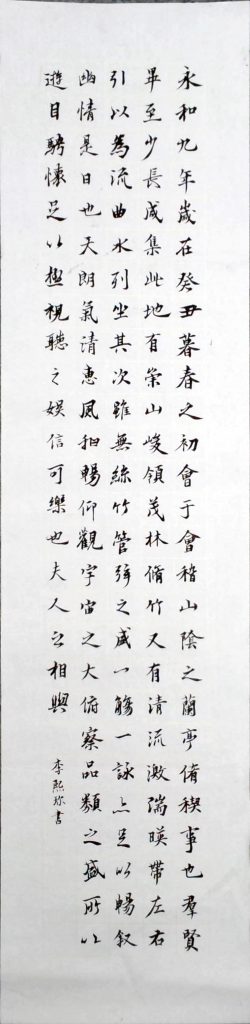 永和九年歲在癸丑暮春之初會于會稽山陰之蘭亭脩稧事也羣賢
畢至少長咸集此地有崇山峻領茂林脩竹又有清流激湍暎帶左右
引以為流曲水列坐其次雖無絲竹管弦之盛一觴一詠亦足以暢叙
幽情是日也天朗氣清惠風和暢仰觀宇宙之大俯察品類之盛所以
遊目騁懷足以極視聽之娛信可樂也夫人之相與
李熙書